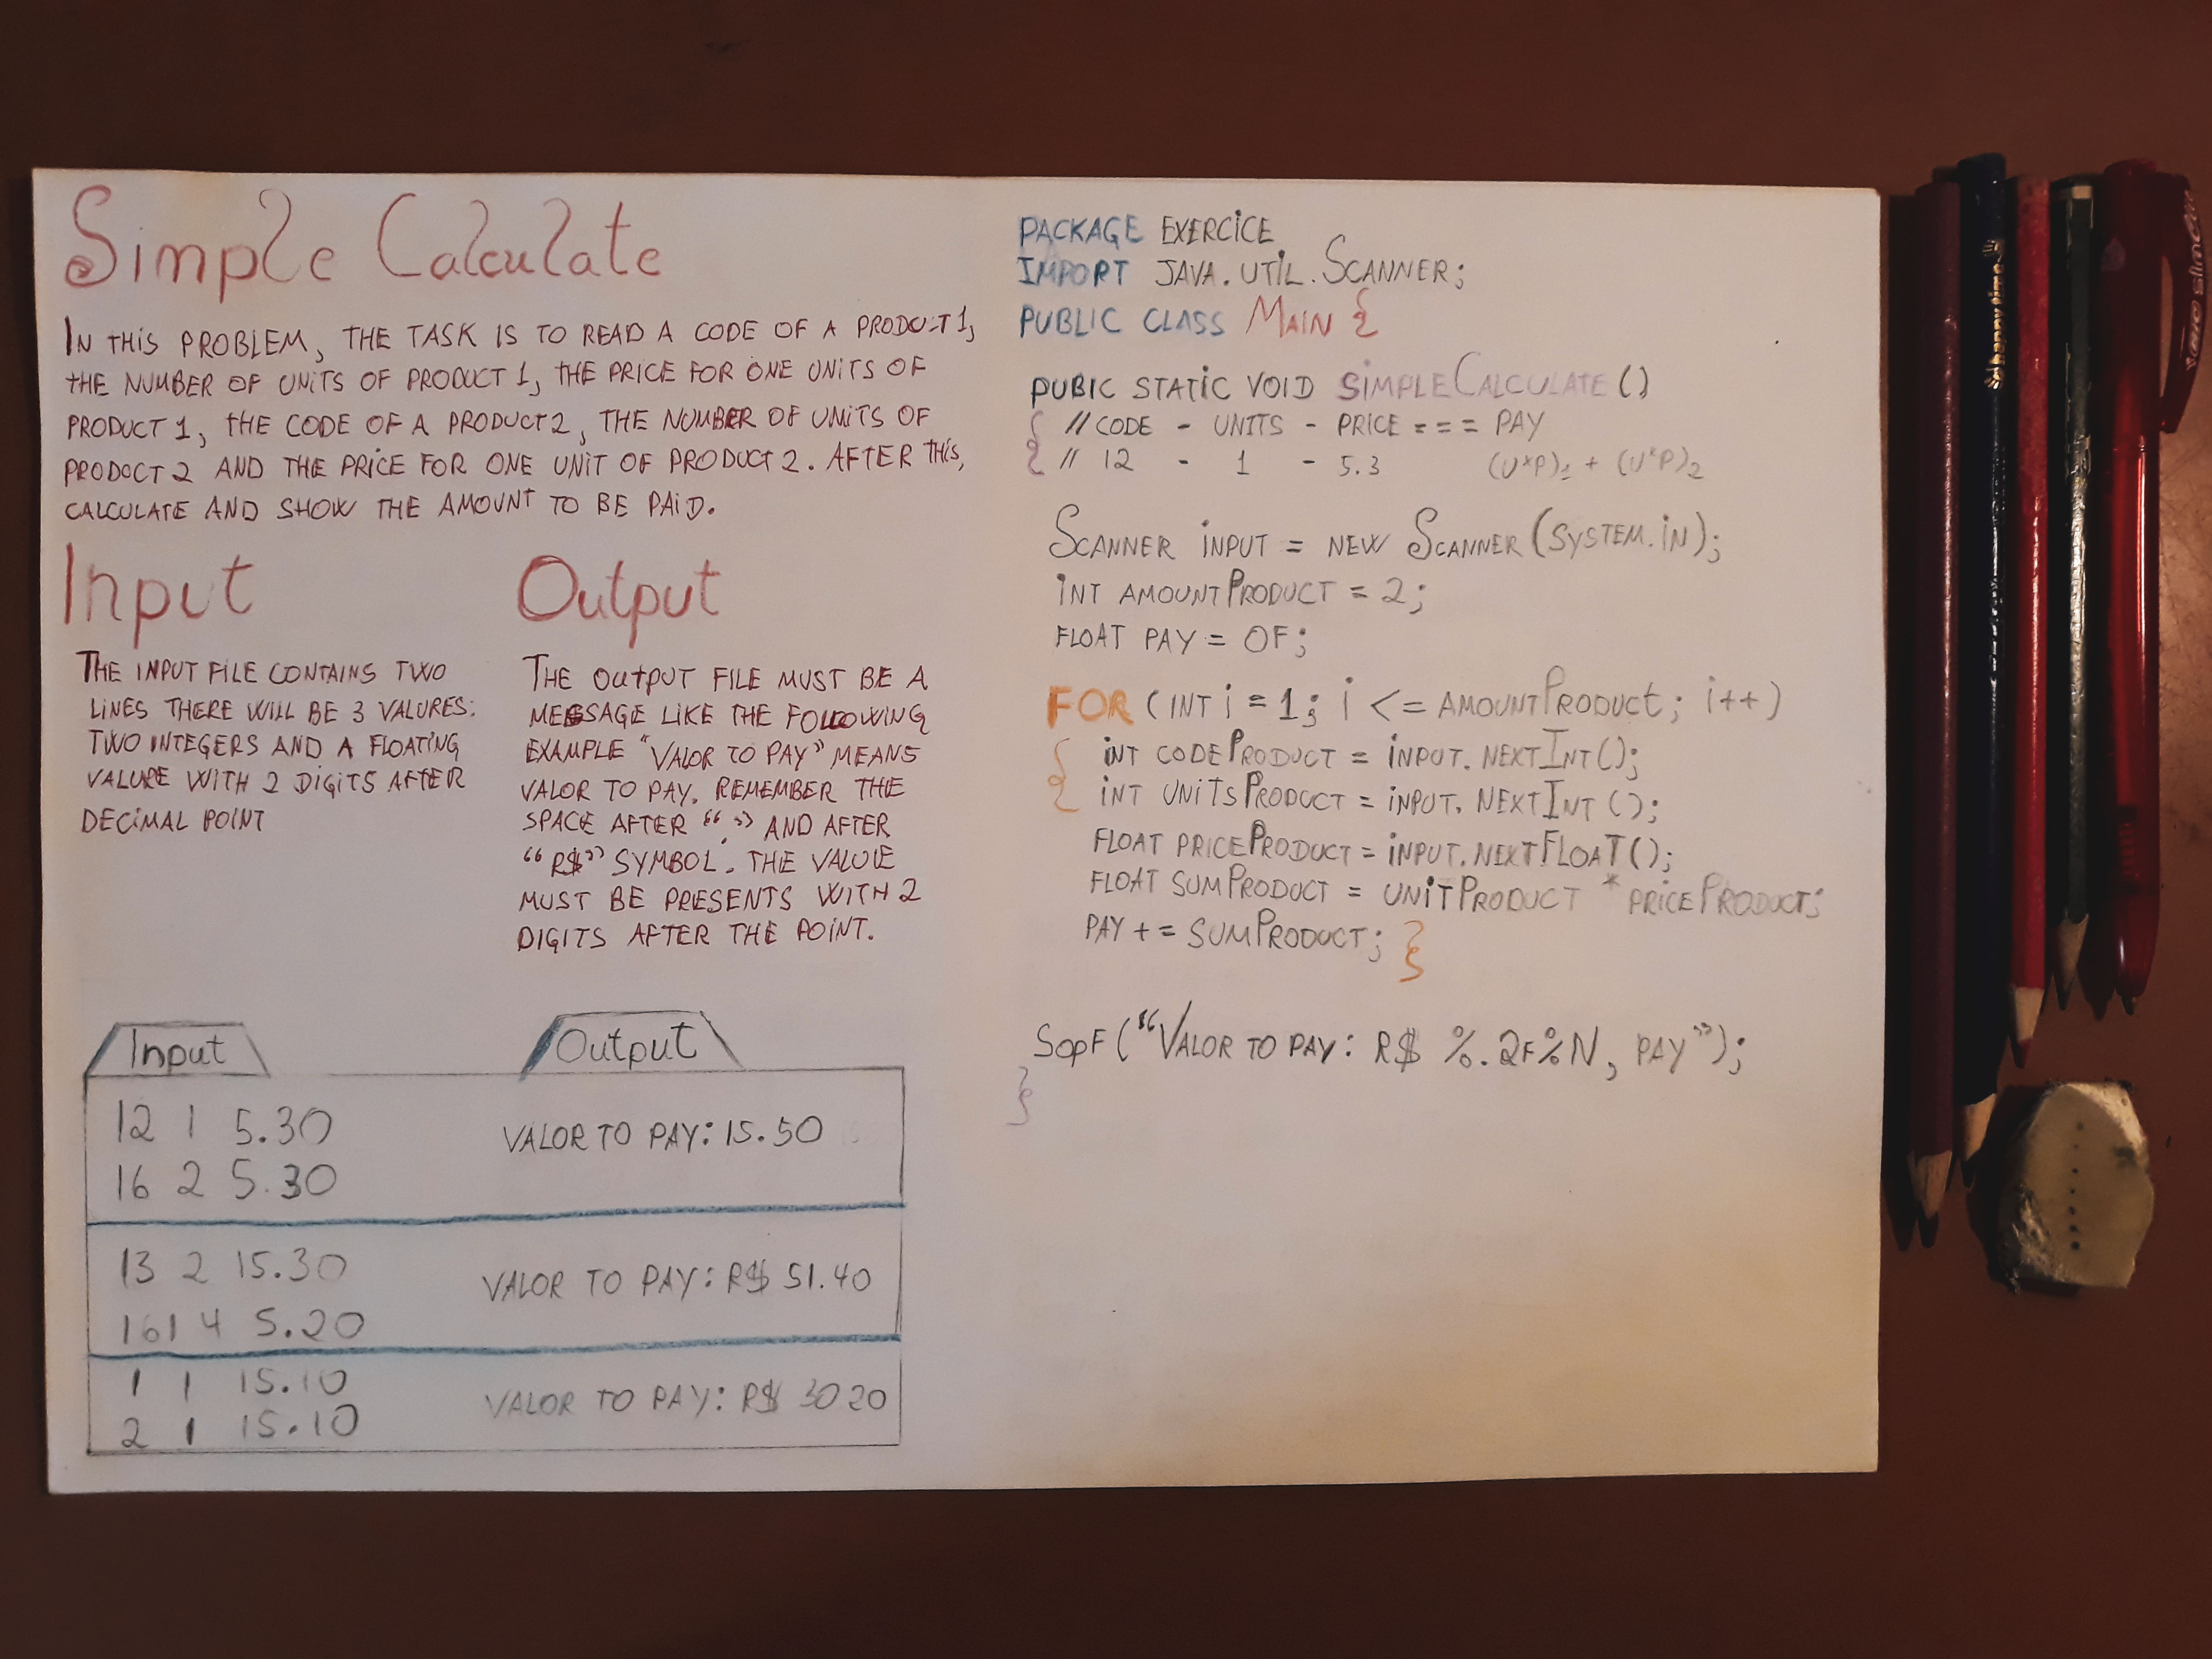 Simple Calculate
IN THIS PROBLEM, THE TASK IS TO READ A CODE OF A PRODUCT 1,
THE NUMBER OF UNITS OF PRODUCT 1, THE PRICE FOR ONE UNITS OF
PRODUCT 1, THE CODE OF A PRODUCT 2, THE NUMBER OF UNITS OF
PRODUCT 2 AND THE PRICE FOR ONE UNIT OF PRODUCT 2. AFTER THIS,
CALCULATE AND SHOW THE AMOUNT TO BE PAID.
Input
THE INPUT FILE CONTAINS TWO
LINES THERE WILL BE 3 VALURES:
TWO INTEGERS AND A FLOATING
VALURE WITH 2 DIGITS AFTER
DECIMAL POINT
Output
THE OUTPUT FILE MUST BE A
MESSAGE LIKE THE FOLLOWING
EXAMPLE "VALOR TO PAY" MEANS
VALOR TO PAY. REMEMBER THE
SPACE AFTER ":" AND AFTER
"R$" SYMBOL. THE VALUE
MUST BE PRESENTS WITH 2
DIGITS AFTER THE POINT.
Input
Output
12 1 5.30
16 2 5.30
VALOR TO PAY: 15.50
13 2 15.30
161 4 5.20
VALOR TO PAY: R$ 51.40
1 1 15.10
2 1 15.10
VALOR TO PAY: R$ 30 20
PACKAGE EXERCICE
IMPORT JAVA.UTIL.SCANNER;
PUBLIC CLASS MAIN {
PUBIC STATIC VOID SIMPLECALCULATE ()
{ // CODE - UNITS - PRICE === PAY
// 12 - 1 - 5.3 (U*P)1 + (U*P)2
SCANNER INPUT = NEW SCANNER (SYSTEM.IN);
INT AMOUNTPRODUCT = 2;
FLOAT PAY = 0F;
FOR (INT i = 1; i <= AMOUNTPRODUCT; i++)
{ INT CODEPRODUCT = INPUT.NEXTINT();
INT UNITSPRODUCT = INPUT.NEXTINT();
FLOAT PRICEPRODUCT = INPUT.NEXTFLOAT();
FLOAT SUMPRODUCT = UNITPRODUCT * PRICEPRODUCT;
PAY += SUMPRODUCT; }
SOPF ("VALOR TO PAY: R$ %.2F%N, PAY");
}
happy time